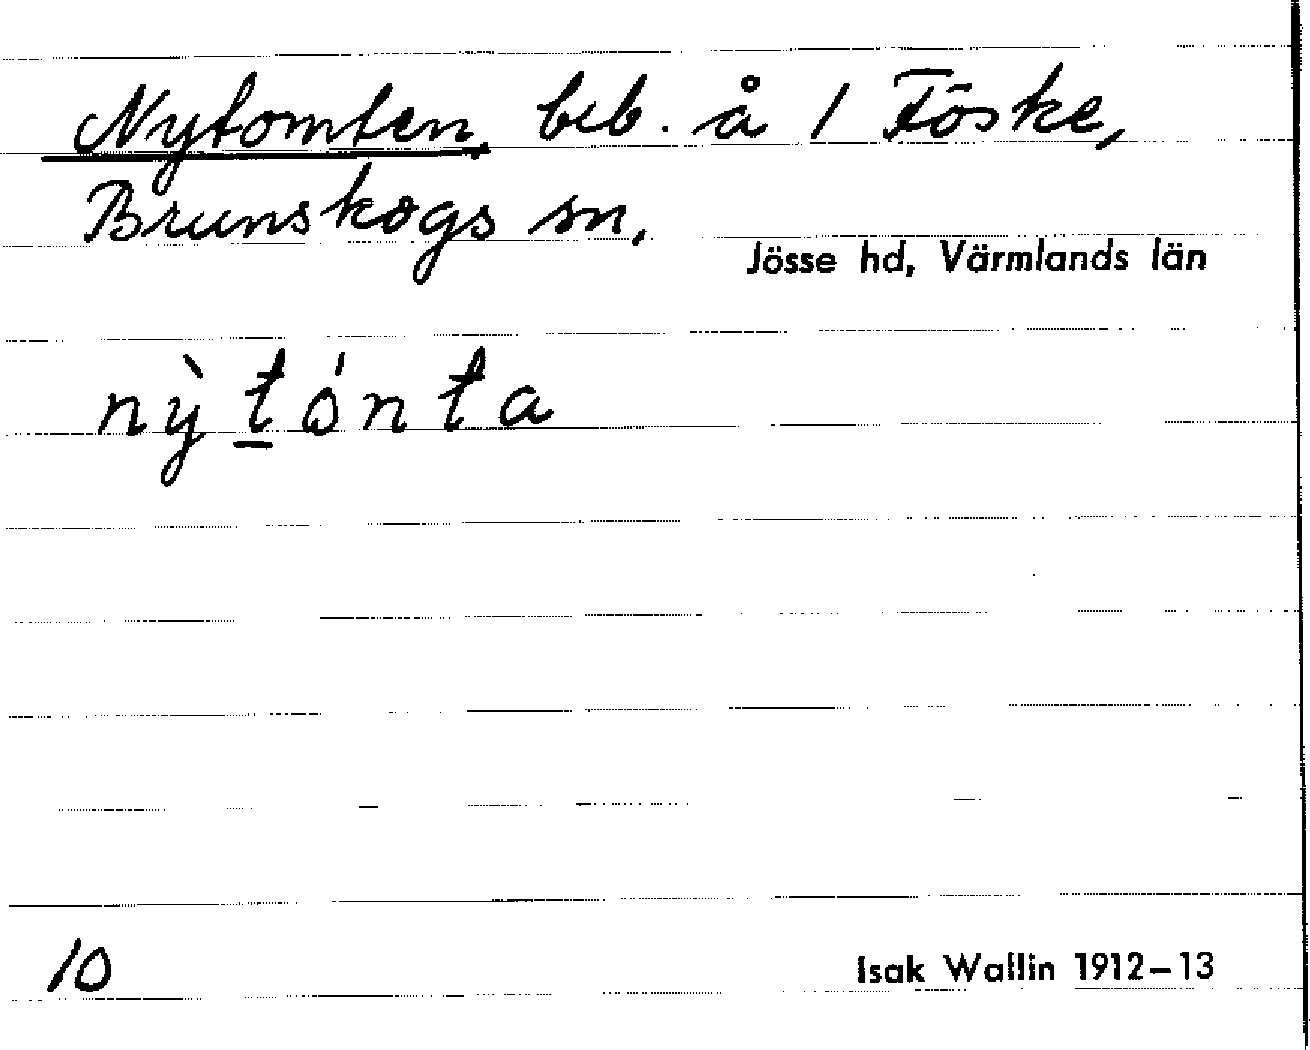 Nytomten, beb. å 1 Föske,
Brunskogs sn,
Jösse hd, Värmlands län
nỳt̲ónta
10
Isak Wallin 1912–13